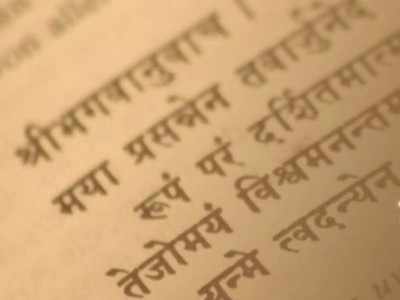 श्रीभगवानुवाच ।
मया प्रसन्नेन तवार्जुनेदं
रूपं परं दर्शितमात्म
तेजोमयं विश्वमनन्तम
यन्मे त्वदन्येन